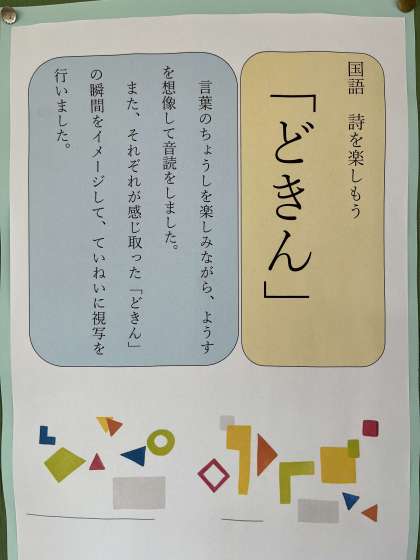 国語　詩を楽しもう
「どきん」
言葉のちょうしを楽しみながら、ようす
を想像して音読をしました。
また、それぞれが感じ取った「どきん」
の瞬間をイメージして、ていねいに視写を
行いました。